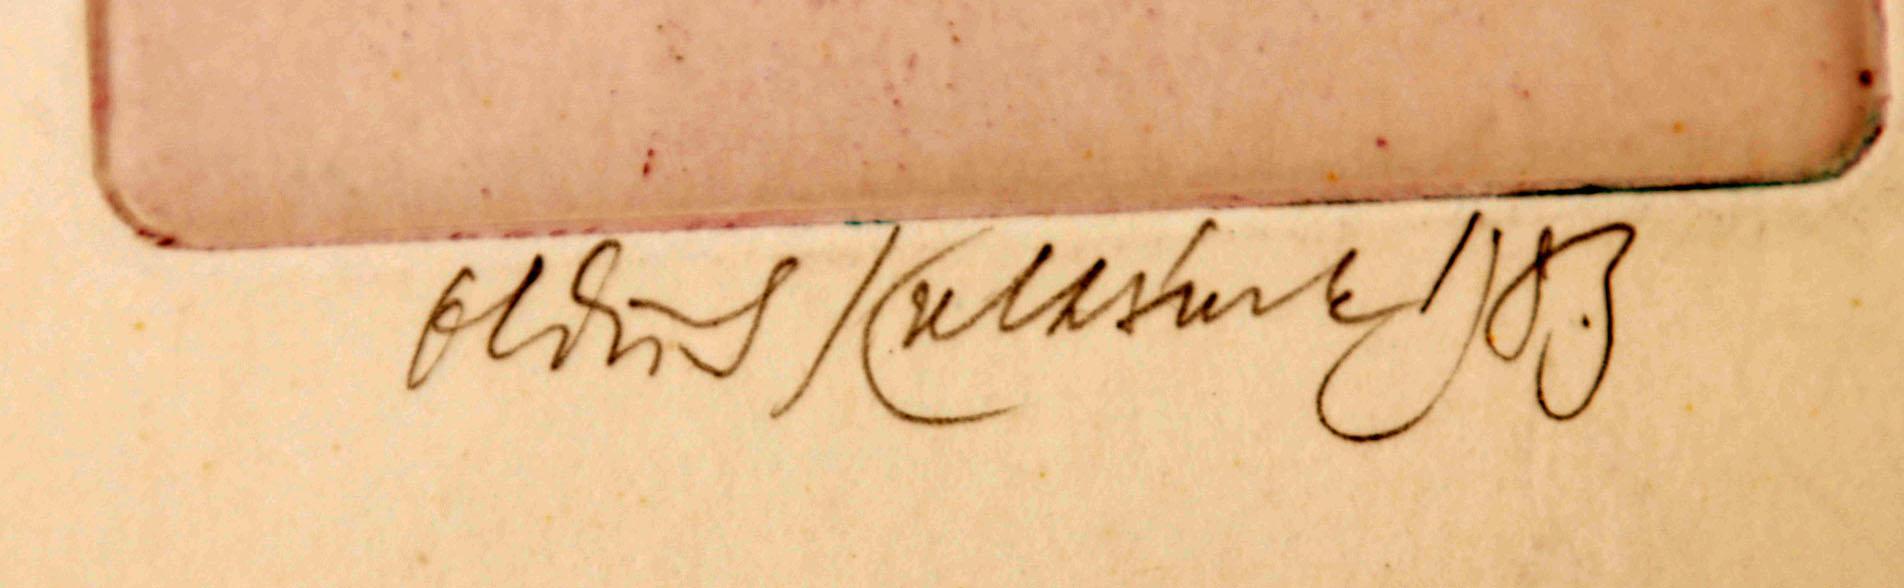 Oldřich Kulhánek 1983